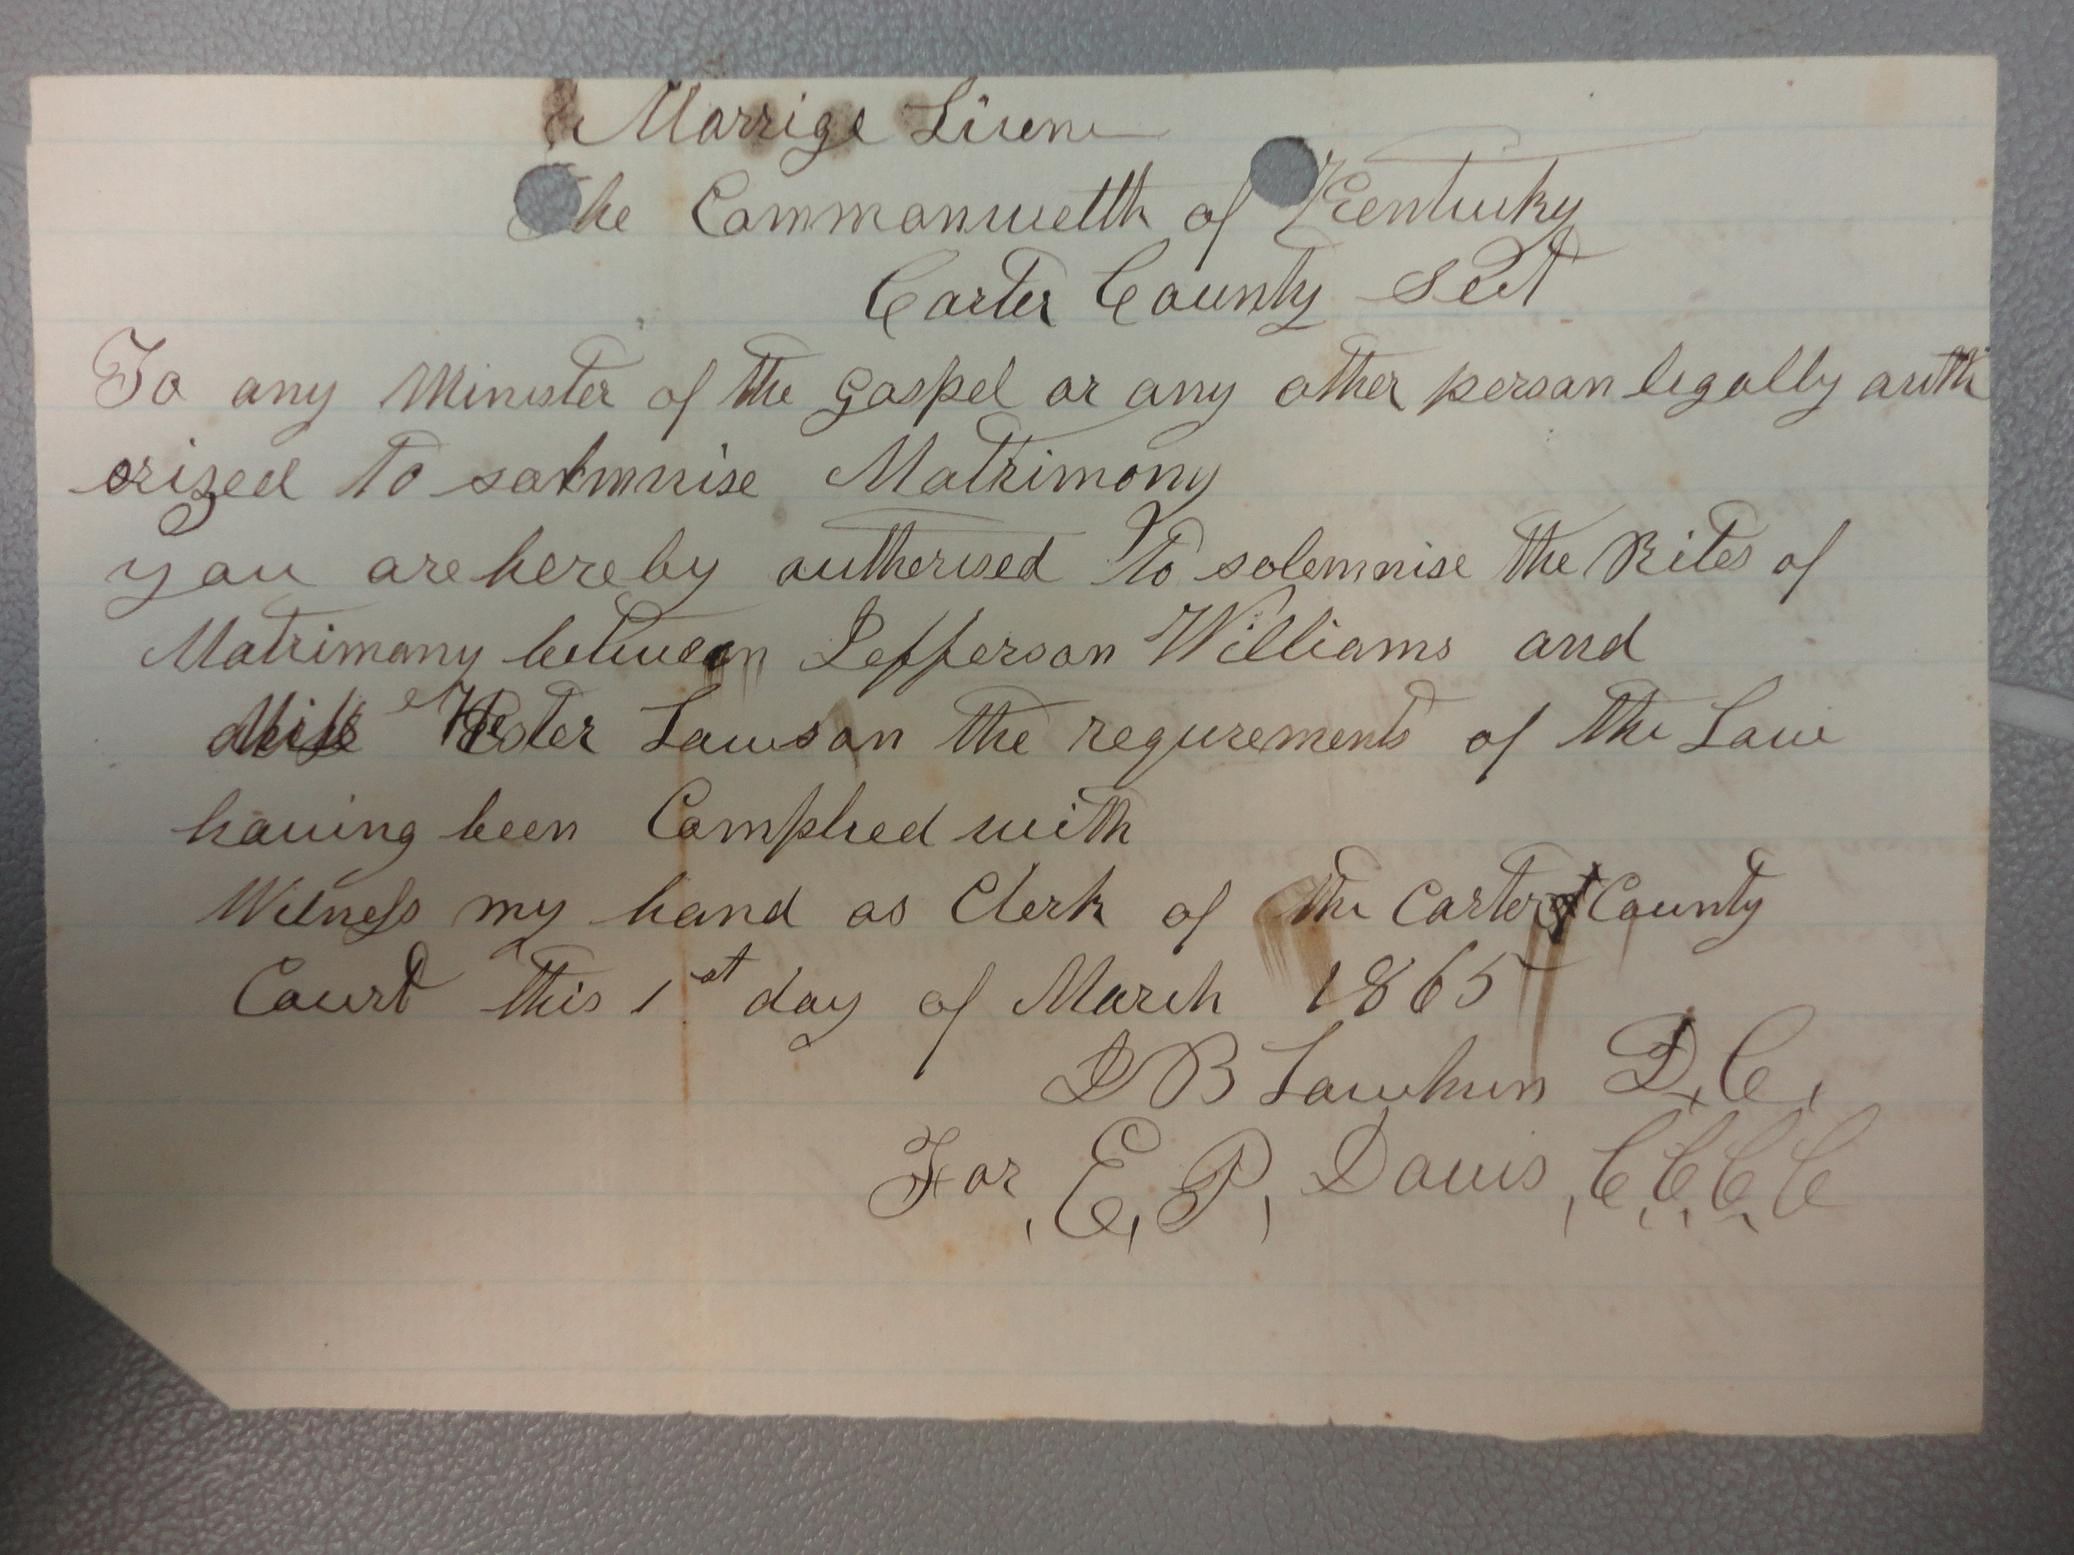 Marrige Licens
The Commonwelth of Kentucky
Carter County Sect
To any Minister of the Gospel or any other person legally auth
orized to solemnise Matrimony
you are hereby autherised to solemnise the Rites of
Matrimony between Jefferson Williams and
Miss Hester Lawson the requrements of the Law
having been Complied with
Witness my hand as Clerk of the Carter County
Court this 1st day of March 1865
J B Lawhun D, C,
For, E, P, Davis, C, C, C, C